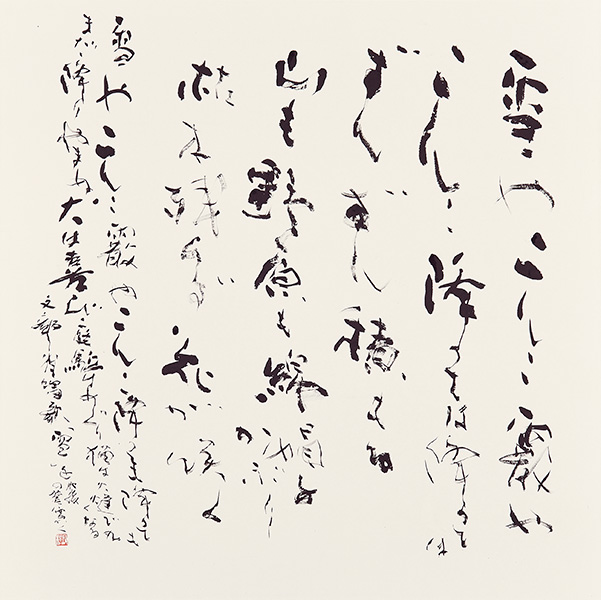 雪やこんこ霰や
こんこ降つては降つては
ずんずん積もる
山も野原も綿帽子かぶり
枯木残らず花が咲く
雪やこんこ霰やこんこ降つても降つても
まだ降りやまぬ犬は喜び庭駈けまはり猫は火燵で丸くなる
文部省唱歌 雪